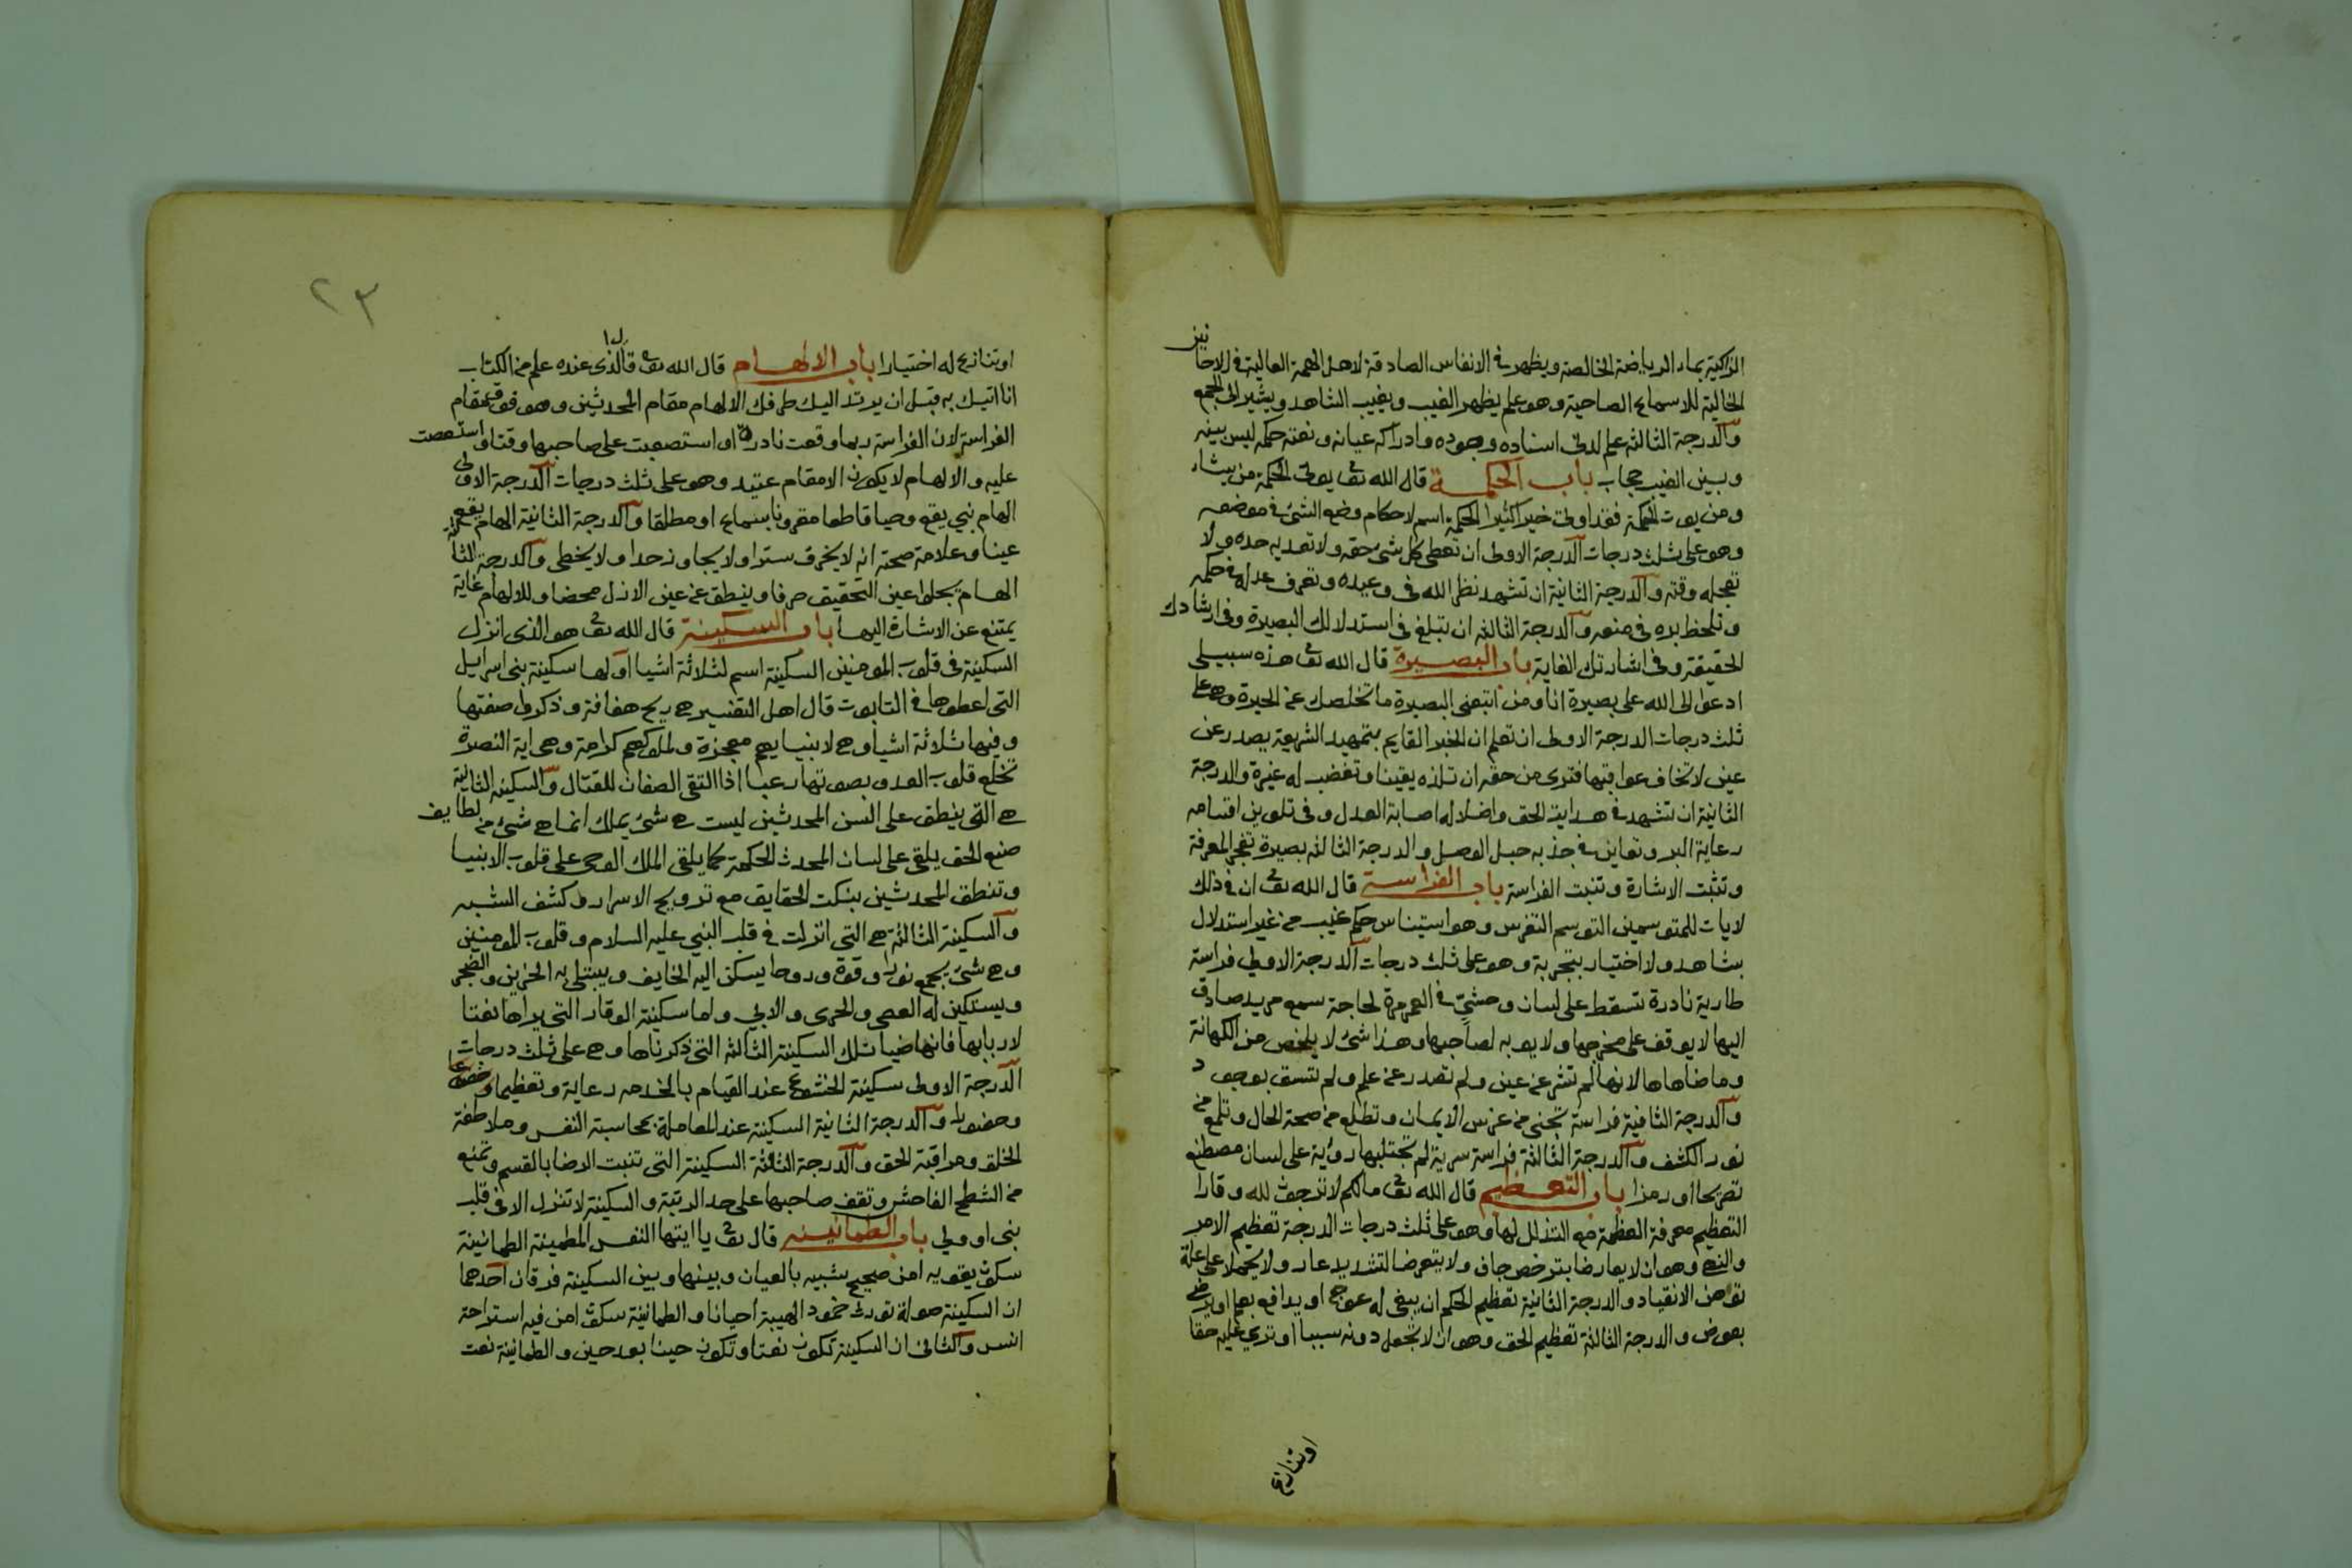 الزاكية بماء الرياضة الخالصة ويظهر في الانفاس الصادقة لاهل الهمة العالية في الاحايين
الخالية للاسماع الصاحية وهو علم يظهر الغيب ويغيب الشاهد ويشير الى الجمع
والدرجة الثالثة علم لدني اسناده وجوده وادراكه عيانه ونعته حكمه ليس بينه
وبين الغيب حجاب باب الحكمة قال الله تع يؤتي الحكمة من يشاء
ومن يوت الحكمة فقد اوتي خيرا كثيرا الحكمة اسم لاحكام وضع الشئ في موضعه
وهو على ثلث درجات الدرجة الاولى ان تعطى كل شئ حقه ولا تعديه حده ولا
تعجله وقته والدرجة الثانية ان تشهد نظر الله في وعيده وتعرف عدله في حكمه
وتلحظ بره في منعه والدرجة الثالثة ان تبلغ في استدلالك البصيرة وفي ارشادك
الحقيقة وفي اشارتك الغاية باب البصيرة قال الله تع هذه سبيلي
ادعوا الى الله على بصيرة انا ومن اتبعني البصيرة ما تخلصك عن الحيرة وهي على
ثلث درجات الدرجة الاولى ان تعلم ان الخبر القايم بتمهيد الشريعة يصدر عن
عين لا تخاف عواقبها فترى من حقه ان تلذه يقينا وتغضب له غيرة والدرجة
الثانية ان تشهد في هداية الحق واضلاله اصابة العدل وفي تلوين اقسامه
رعاية البر وتعاين في جذبه حبل الوصل والدرجة الثالثة بصيرة تفجر المعرفة
وتثبت الاشارة وتنبت الفراسة باب الفراسة قال الله تع ان في ذلك
لايات للمتوسمين التوسم التفرس وهو استيناس حكم غيب من غير استدلال
بشاهد ولا اختيار بتجربة وهو على ثلث درجات الدرجة الاولى فراسة
طارية نادرة تسقط على لسان وحشيّ في العمر مرة لحاجة سمع مريد صادق
اليها لا يوقف على مخرجها ولا يوبه لصاحبها وهذا شئ لا يلخص من الكهانة
وما ضاهاها لانها لم تشر عن عين ولم تصدر عن علم ولم تسبق بوجود
والدرجة الثانية فراسة تجنى من غرس الايمان وتطلع من صحة الحال وتلمع من
نور الكشف والدرجة الثالثة فراسة سرية لم تجتلبها روية على لسان مصطنع
تصريحا او رمزا باب التعظيم قال الله تع مالكم لا ترجون لله وقارا
التعظيم معرفة العظمة مع التذلل لها وهو على ثلث درجات الدرجة تعظيم الامر
والنهي وهو ان لا يعارضا بترخص جاف ولا يتعرضا لتشديد عار ولا يحملا على علة
توهن الانقياد والدرجة الثانية تعظيم الحكم ان يبغى له عوجا او يدافع بعلم او يرضى
بعوض والدرجة الثالثة تعظيم الحق وهو ان لا تجعل دونه سببا او ترى عليه حقا
اوتنازع
٢٣
او تنازع له اختيارا باب الالهام قال الله تع قال الذي عنده علم من الكتاب
انا اتيك به قبل ان يرتد اليك طرفك الالهام مقام المحدثين وهو فوق مقام
الفراسة لان الفراسة ربما وقعت نادرة او استصعبت على صاحبها وقتا واستعصت
عليه والالهام لا يكون الا مقام عتيد وهو على ثلث درجات الدرجة الاولى
الهام نبي يقع وحيا قاطعا مقرونا بسماع او مطلقا والدرجة الثانية الهام يقع
عينا وعلامة صحته انه لا يخرق سترا ولا يجاوز حدا ولا يخطى والدرجة الثالثة
الهام يجلوا عين التحقيق صرفا وينطق عن عين الازل محضا وللالهام غاية
يمتنع عن الاشارة اليها باب السكينة قال الله تع هو الذي انزل
السكينة في قلوب المومنين السكينة اسم لثلاثة اشيا اولها سكينة بني اسرايل
التي اعطوها في التابوت قال اهل التفسير هي ريح هفافة وذكروا صفتها
وفيها ثلاثة اشياء هي لانبيايهم معجزة ولملوكهم كرامة وهي اية النصرة
تخلع قلوب العدو بصوتها رعبا اذا التقى الصفان للقتال والسكينة الثانية
هي التي ينطق على السن المحدثين ليست هي شئ يملك انما هي شئ من لطايف
صنع الحق يلقى على لسان المحدث الحكمة كما يلقى الملك الوحي على قلوب الانبيا
وتنطق المحدثين بنكت الحقايق مع ترويح الاسرار وكشف الشبه
والسكينة الثالثة هي التي انزلت في قلب النبي عليه السلام وقلوب المومنين
وهي شئ يجمع نورا وقوة وروحا يسكن اليه الخايف ويتسلى به الحزين والضجر
ويستكين له العصي والجرى والابي واما سكينة الوقار التي يراها نعتا
لاربابها فانها ضيا تلك السكينة الثالثة التي ذكرناها وهي على ثلث درجات
الدرجة الاولى سكينة الخشوع عند القيام بالخدمه رعاية وتعظيما وخضوعا
وحضورا والدرجة الثانية السكينة عند المعاملة بمحاسبة النفس وملاطفة
الخلق ومراقبة الحق والدرجة الثالثة السكينة التي تنبت الرضا بالقسم وتمنع
من الشطح الفاحش وتقف صاحبها على حد الرتبة والسكينة لا تنزل الا في قلب
نبي او ولي باب الطمانينه قال تع يا ايتها النفس المطمينة الطمانينة
سكون يقويه امن صحيح شبيه بالعيان وبينها وبين السكينة فرقان احدهما
ان السكينة صولة تورث خمود الهيبة احيانا والطمانينة سكون امن فيه استراحة
انس والثاني ان السكينة تكون نعتا وتكون حينا بعد حين والطمانينة نعت